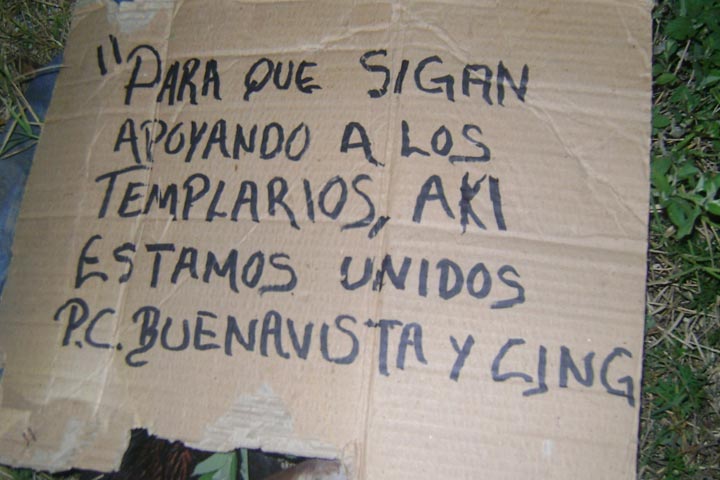 "PARA QUE SIGAN
APOYANDO A LOS
TEMPLARIOS, AKI
ESTAMOS UNIDOS
P.C. BUENAVISTA Y CJNG
"